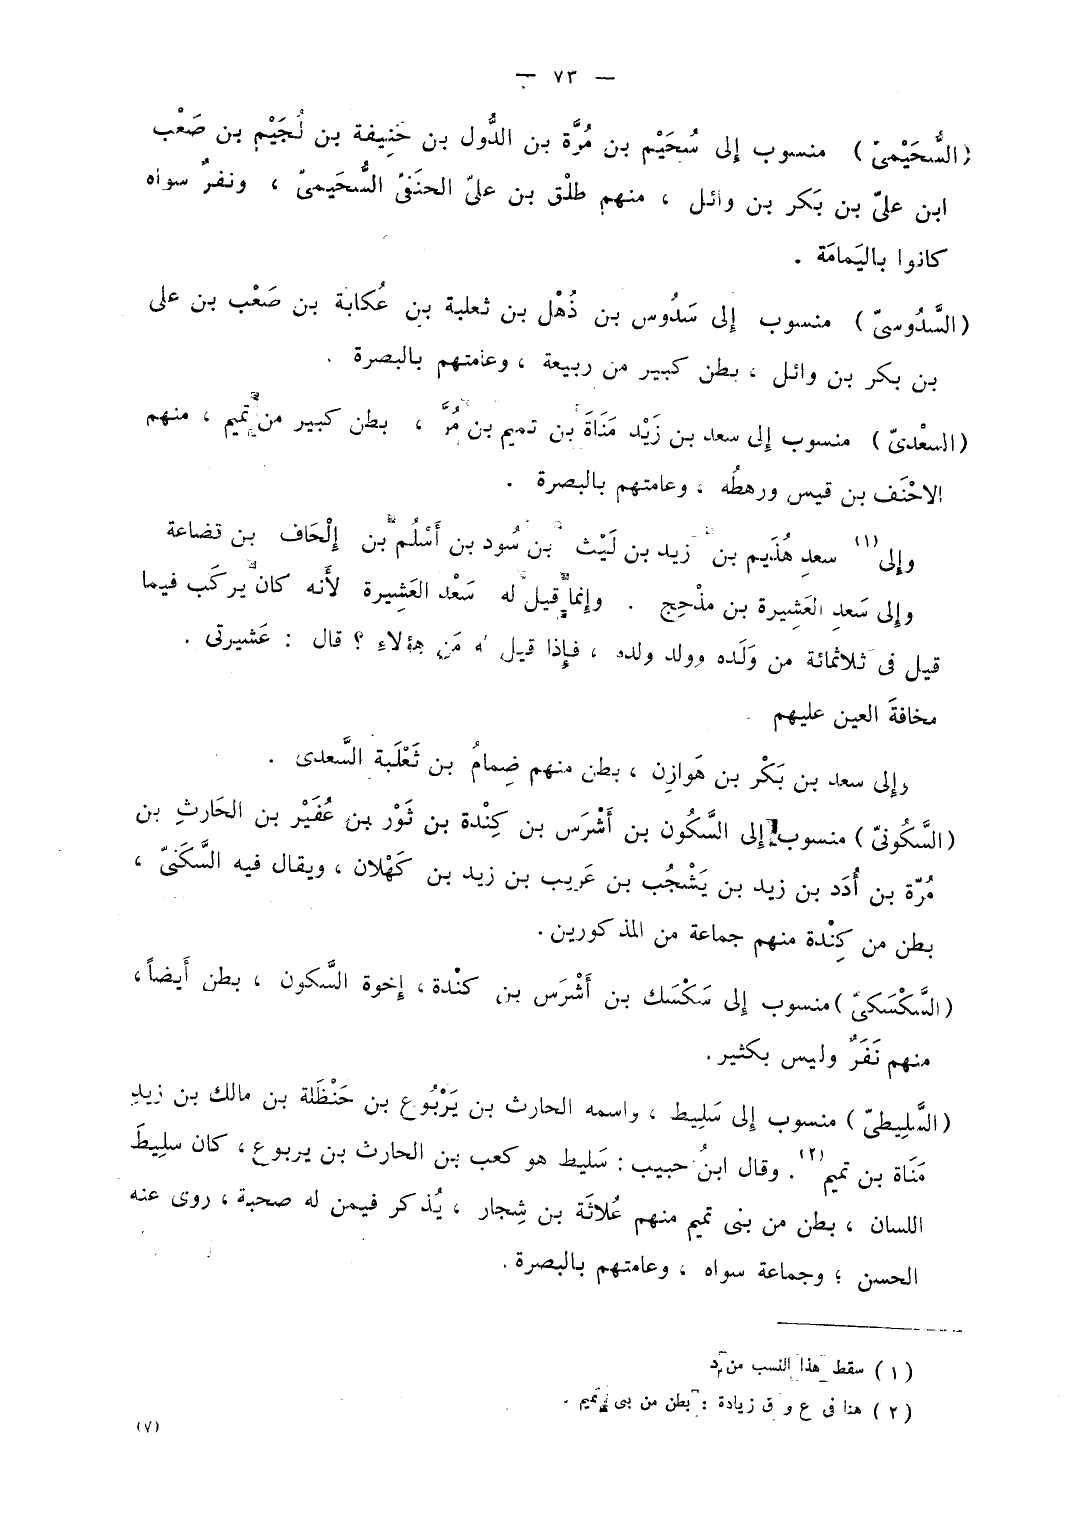 — ٧٣ —
(السُّحَيْمىّ) منسوب إلى سُحَيْم بن مُرَّة بن الدُّول بن حَنِيفة بن لُجَيْم بن صَعْب
ابن علىّ بن بَكر بن وائل ، منهم طلْق بن علىّ الحنَفىّ السُّحَيمىّ ، ونفرٌ سواه
كانوا باليَمامَة .
(السَّدُوسىّ) منسوب إلى سَدُوس بن ذُهْل بن ثعلبة بن عُكابة بن صَعْب بن على
بن بكر بن وائل ، بطن كبير من ربيعة ، وعامتهم بالبصرة .
(السعْدىّ) منسوب إلى سعد بن زَيْد مَنَاةَ بن تميم بن مُرَّ ، بطن كبير من تميم ، منهم
الاحْنَف بن قيس ورهطُه ، وعامتهم بالبصرة .
وإلى (١) سعدِ هُذَيم بن زيد بن لَيْث بن سُود بن أَسْلُم بن إلْحَاف بن قضاعة
وإلى سَعدِ العَشِيرة بن مذْحِج . وإنما قيل له سَعْد العَشِيرة لأَنه كان يركَب فيما
قيل فى ثلاثمائة من وَلَده وولد ولده ، فإِذا قيل له مَن هؤلاء ؟ قال : عَشيرتى .
مخافةَ العين عليهم .
وإلى سعد بن بَكْر بن هَوازِن ، بطن منهم ضِمامُ بن ثَعْلَبة السَّعدى .
(السَّكُونىّ) منسوب إلى السَّكُون بن أَشْرَس بن كِنْدة بن ثَوْر بن عُفَيْر بن الحَارثِ بن
مُرّة بن أُدَد بن زيد بن يَشْجُب بن عَرِيب بن زيد بن كَهْلان ، ويقال فيه السَّكَنىّ ،
بطن من كِنْدة منهم جماعة من المذكورين .
(السَّكْسَكىّ) منسوب إلى سَكْسَك بن أَشْرَس بن كنْدة ، إخوة السَّكون ، بطن أَيضاً ،
منهم نَفَرٌ وليس بكثير .
(السَّلِيطىّ) منسوب إلى سَلِيط ، واسمه الحارث بن يَرْبُوع بن حَنْظَلة بن مالك بن زيدِ
مَنَاة بن تميم (٢) . وقال ابنُ حبيب : سَليط هو كعب بن الحارث بن يربوع ، كان سليطَ
اللسان ، بطن من بنى تميم منهم عُلاثَة بن شِجار ، يُذكر فيمن له صحبة ، روى عنه
الحسن ؛ وجماعة سواه ، وعامتهم بالبصرة .
(١) سقط هذا النسب من د
(٢) هنا فى ع و ق زيادة : بطن من بنى تميم .
(٧)